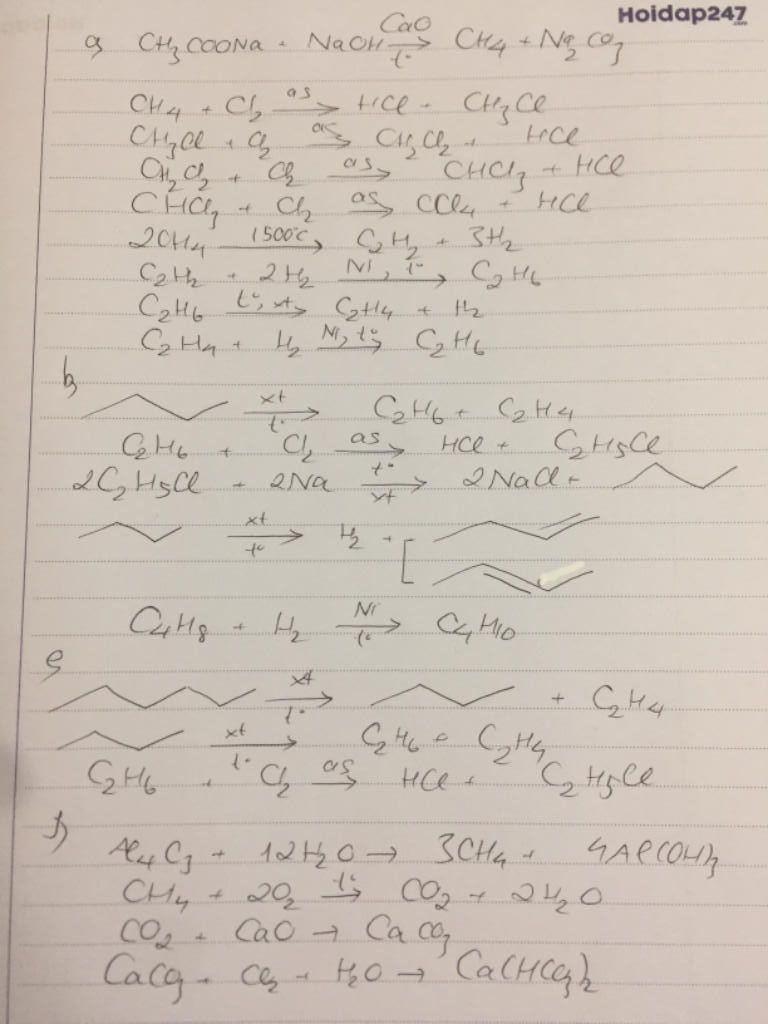 Hoidap247.com
a, CH3COONa + NaOH CaO→t° CH4 + Na2CO3
CH4 + Cl2 as→ HCl + CH3Cl
CH3Cl + Cl2 as→ CH2Cl2 + HCl
CH2Cl2 + Cl2 as→ CHCl3 + HCl
CHCl3 + Cl2 as→ CCl4 + HCl
2CH4 1500°C→ C2H2 + 3H2
C2H2 + 2H2 Ni, t°→ C2H6
C2H6 t°, xt→ C2H4 + H2
C2H4 + H2 Ni, t°→ C2H6
b,
xt→t° C2H6 + C2H4
C2H6 + Cl2 as→ HCl + C2H5Cl
2C2H5Cl + 2Na t°→xt 2NaCl +
xt→t° H2 + [
C4H8 + H2 Ni→t° C4H10
xt→t° + C2H4
xt→t° C2H6 + C2H4
C2H6 + Cl2 as→ HCl + C2H5Cl
Al4C3 + 12H2O → 3CH4 + 4Al(OH)3
CH4 + 2O2 t°→ CO2 + 2H2O
CO2 + CaO → CaCO3
CaCO3 + CO2 + H2O → Ca(HCO3)2